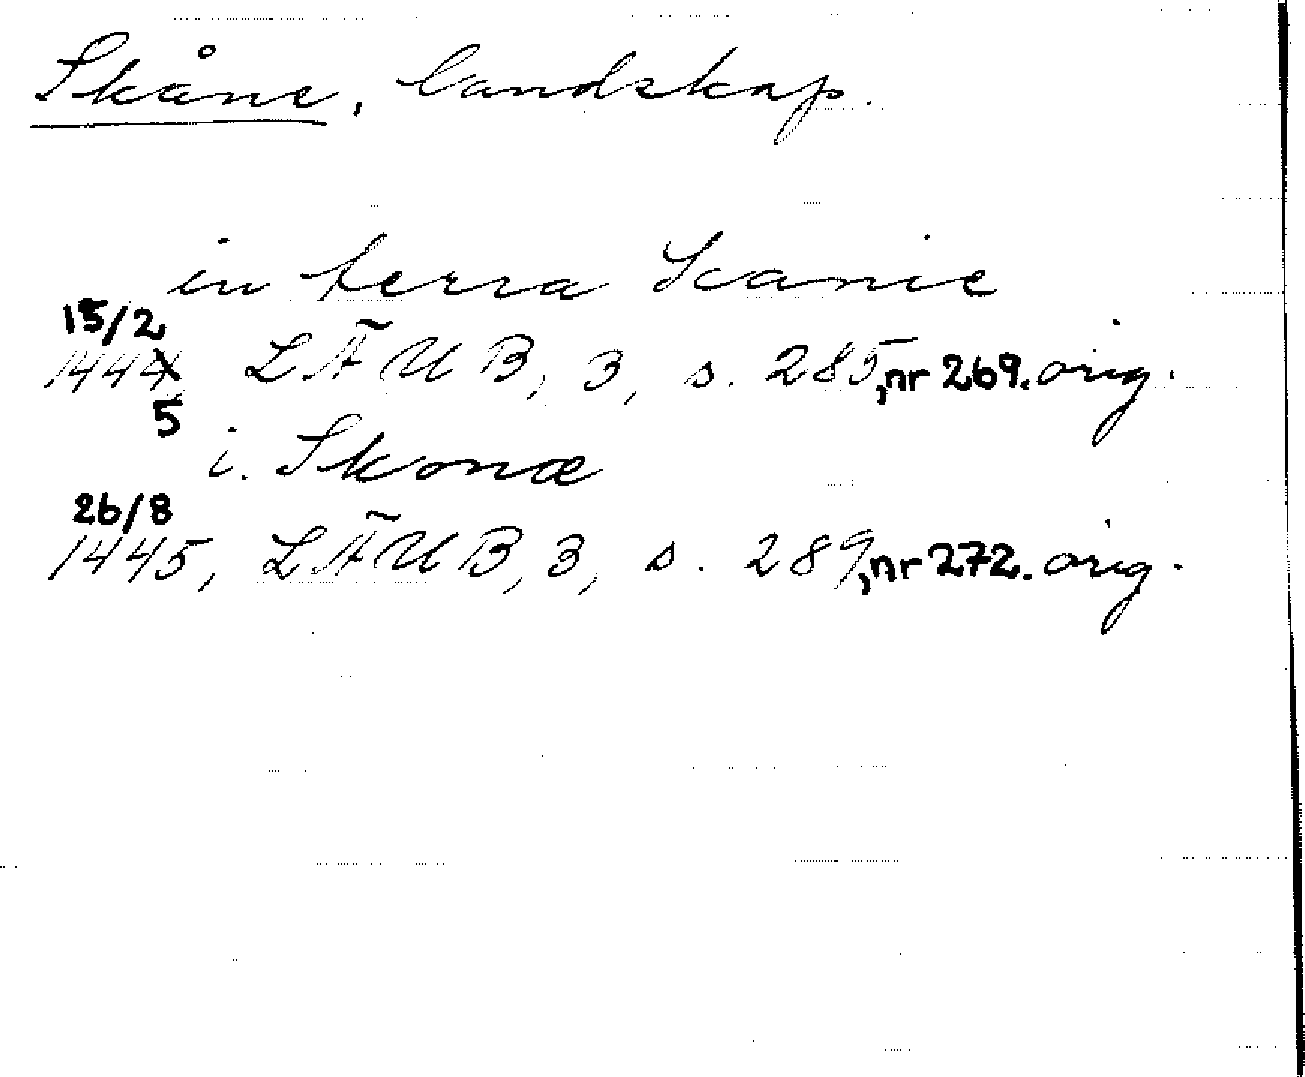 Skåne, landskap.
in terra Scanie
15/2
1444 LÄUB, 3, s. 285, nr 269. orig.
5
i. Skonæ
26/8
1445, LÄUB, 3, s. 289, nr 272. orig.